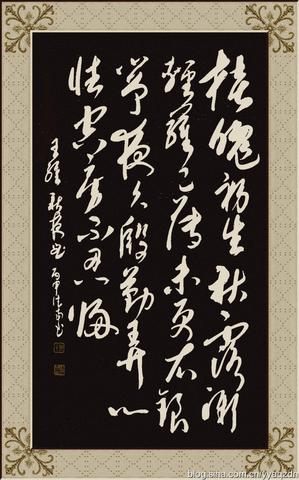 桂魄初生秋露微
輕羅已薄未更衣銀
箏夜久殷勤弄心
怯空房不忍歸
王維秋夜曲丙申書
blog.sina.com.cn/yyaqzdn